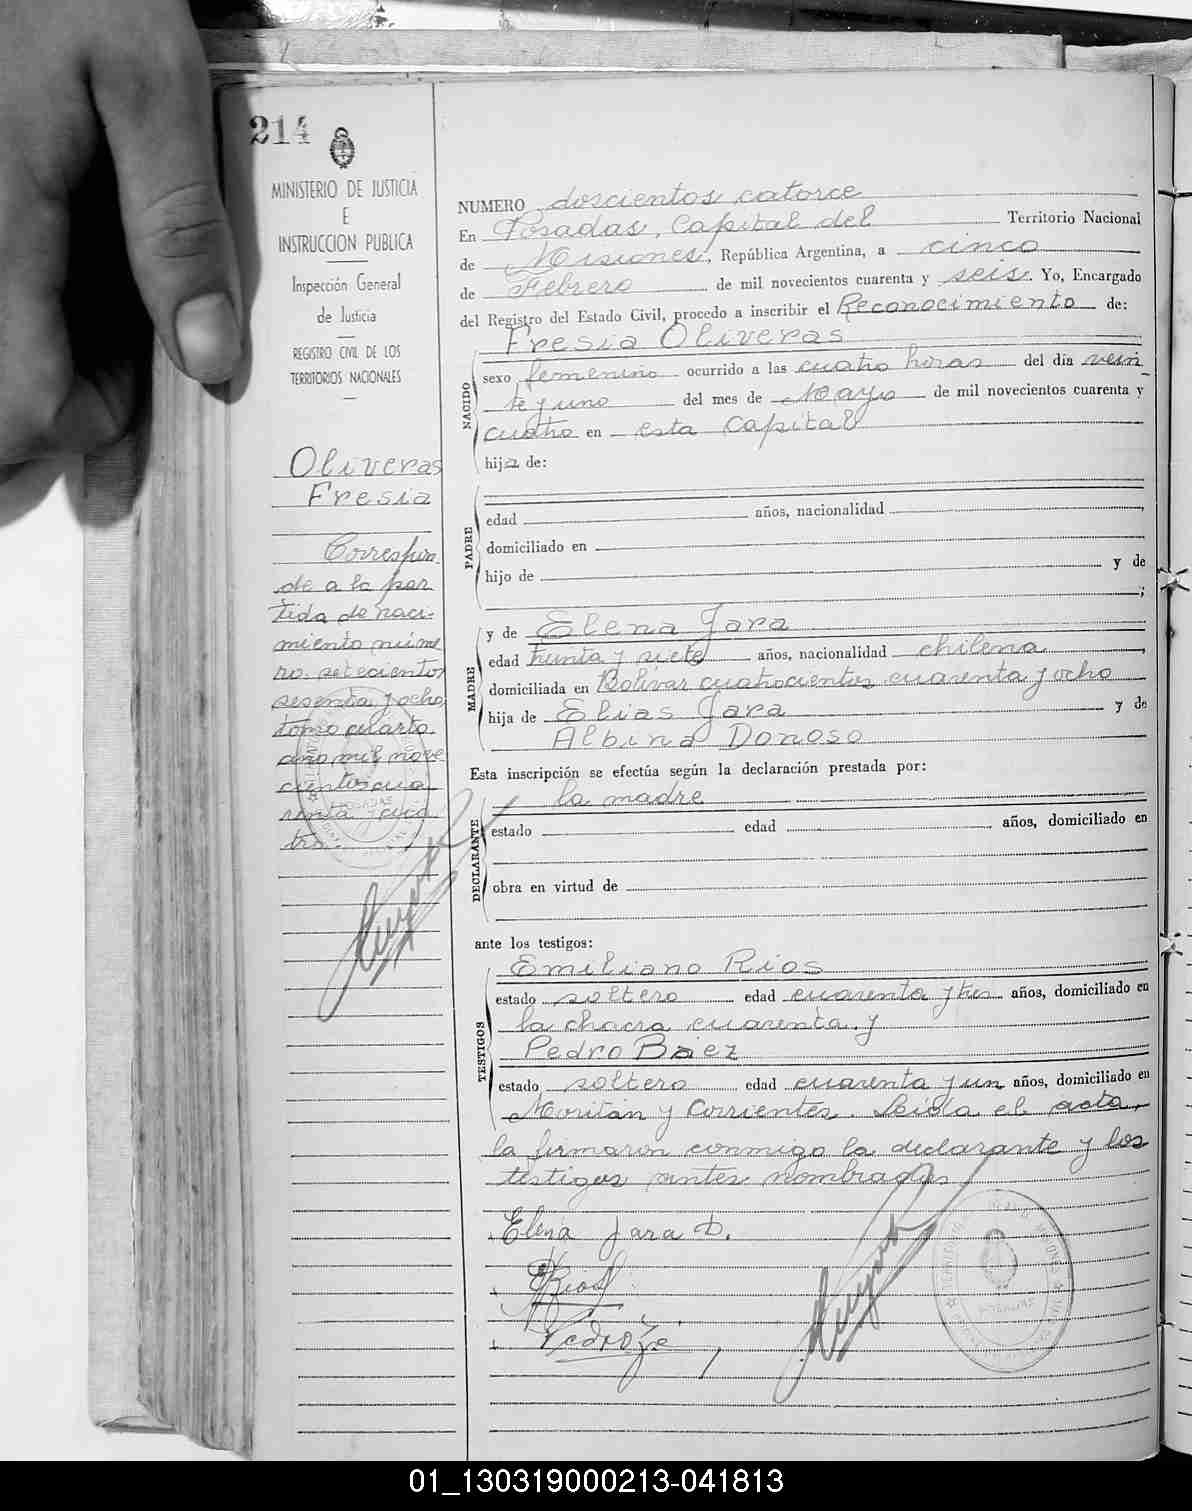 214
MINISTERIO DE JUSTICIA
E
INSTRUCCION PUBLICA
Inspección General
de Justicia
REGISTRO CIVIL DE LOS
TERRITORIOS NACIONALES
Oliveras
Fresia
Correspon-
de a la par
tida de naci-
miento núme
ro setecientos
sesenta y ocho
tomo cuarto
año mil nove
cientos cua
renta y cua
tro.
NUMERO doscientos catorce
En Posadas, Capital del Territorio Nacional
de Misiones, República Argentina, a cinco
de Febrero de mil novecientos cuarenta y seis. Yo, Encargado
del Registro del Estado Civil, procedo a inscribir el Reconocimiento de:
Fresia Oliveras
NACIDO
sexo femenino ocurrido a las cuatro horas del día vein
te y uno del mes de Mayo de mil novecientos cuarenta y
cuatro en esta Capital
hija de:
PADRE
edad años, nacionalidad
domiciliado en
hijo de y de
;
MADRE
y de Elena Jara
edad treinta y siete años, nacionalidad chilena,
domiciliada en Bolívar cuatrocientos cuarenta y ocho
hija de Elias Jara y de
Albina Donoso
Esta inscripción se efectúa según la declaración prestada por:
DECLARANTE
la madre
estado edad años, domiciliado en
obra en virtud de
ante los testigos:
TESTIGOS
Emiliano Rios
estado soltero edad cuarenta y tres años, domiciliado en
la chacra cuarenta y
Pedro Báez
estado soltero edad cuarenta y un años, domiciliado en
Moritán y Corrientes. Leída el acta,
la firmaron conmigo la declarante y los
testigos antes nombrados.
Elena Jara D.
ERios
01_130319000213-041813